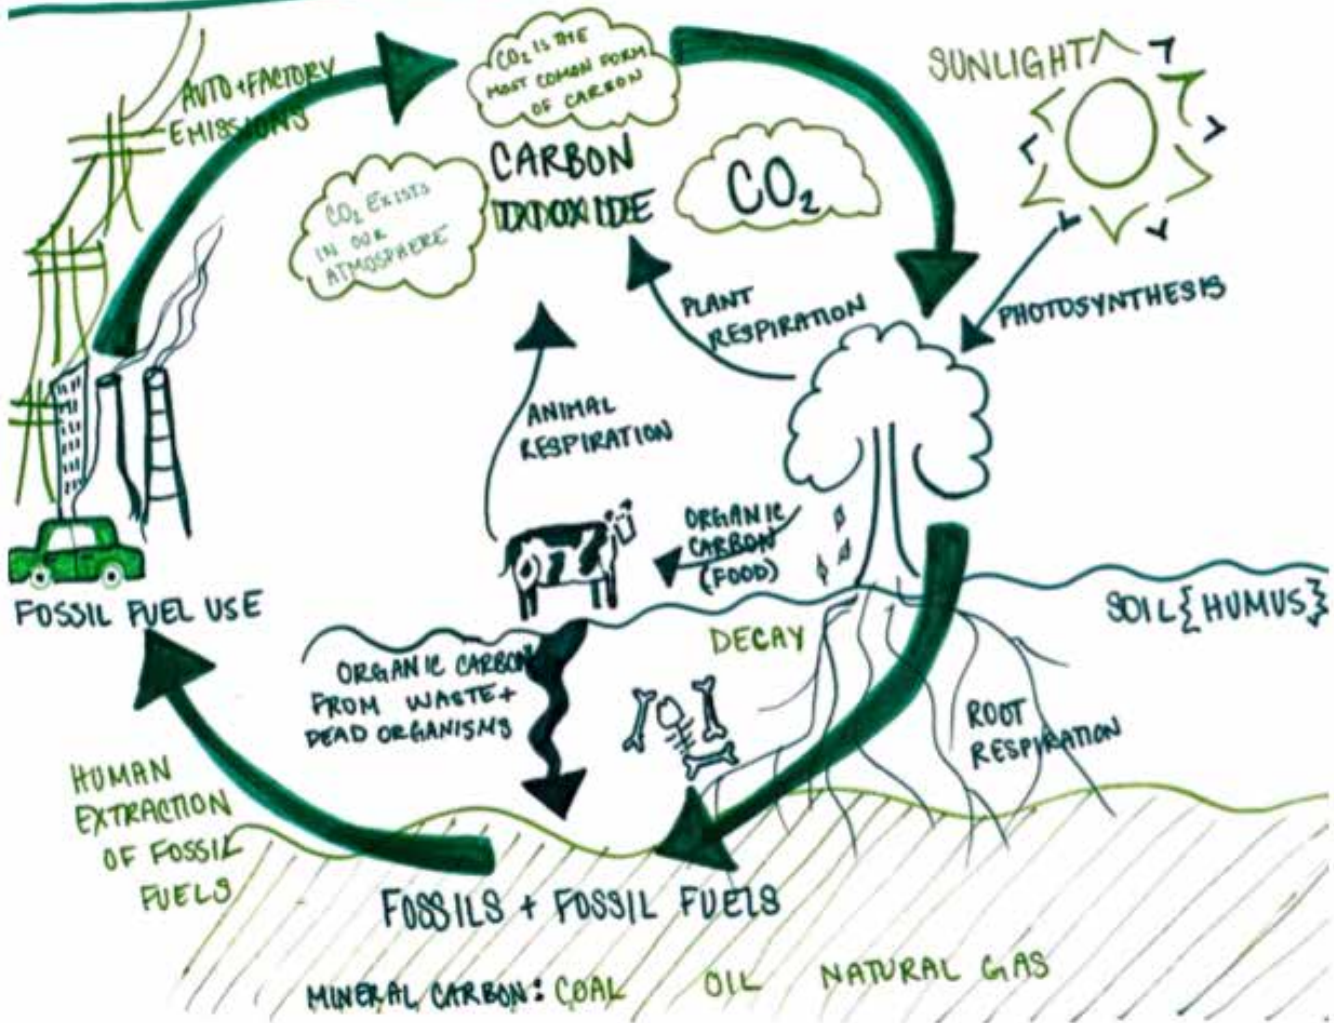 AUTO + FACTORY
EMISSIONS
CO₂ IS THE
MOST COMON FORM
OF CARBON
CARBON
DIOXIDE
CO₂ EXISTS
IN OUR
ATMOSPHERE
CO₂
SUNLIGHT
PHOTOSYNTHESIS
PLANT
RESPIRATION
ANIMAL
RESPIRATION
ORGANIC
CARBON
(FOOD)
FOSSIL FUEL USE
SOIL {HUMUS}
DECAY
ORGANIC CARBON
FROM WASTE +
DEAD ORGANISMS
ROOT
RESPIRATION
HUMAN
EXTRACTION
OF FOSSIL
FUELS
FOSSILS + FOSSIL FUELS
MINERAL CARBON: COAL OIL NATURAL GAS